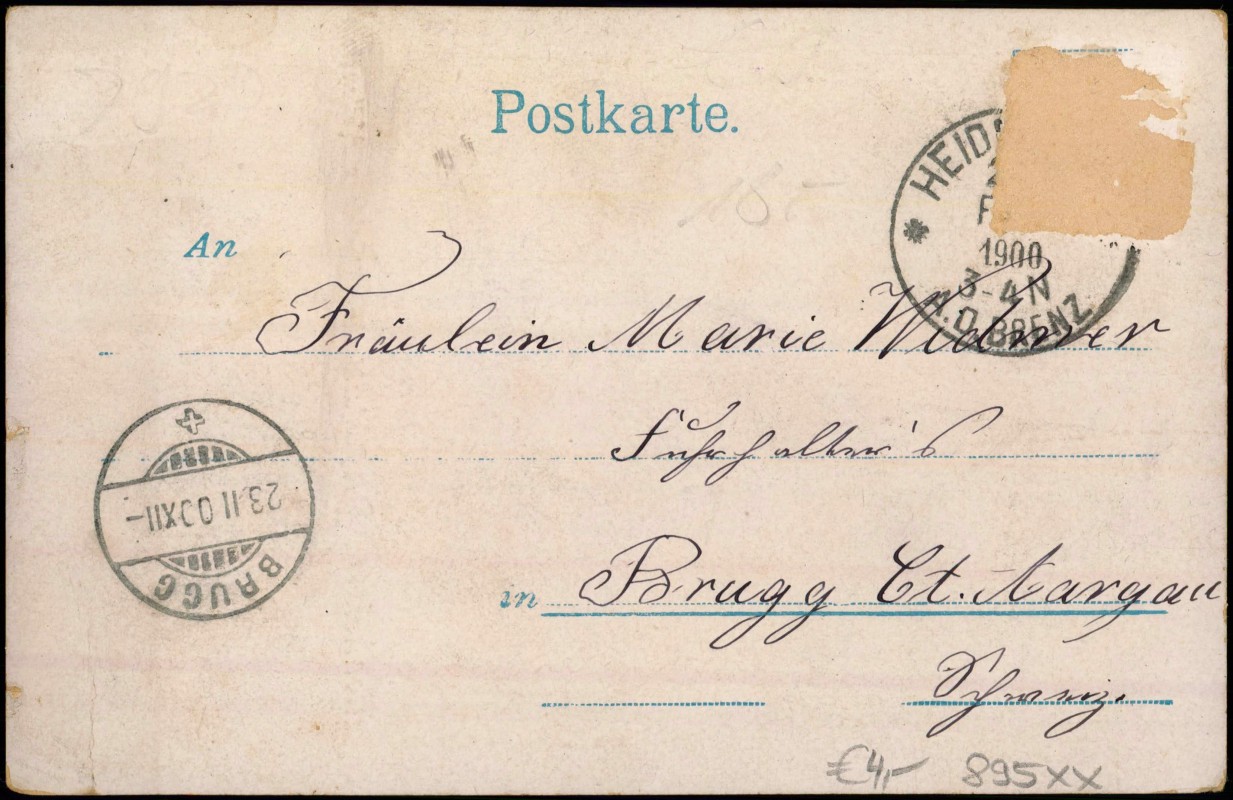 Postkarte.
165-
HEID
F
1900
3-4 N
A.D. BRENZ
An
Fräulein Marie Widmer
Fuhrhalter's
BRUGG
23.II 00 XII-
in Brugg Ct. Aargau
Schweiz.
€4,- 895XX